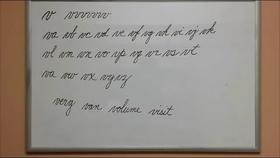 v vvvvvv
va vb vc vd ve vf vg vh vi vj vk
vl vm vn vo vp vq vr vs vt
vu vw vx vy vz
very van volume visit